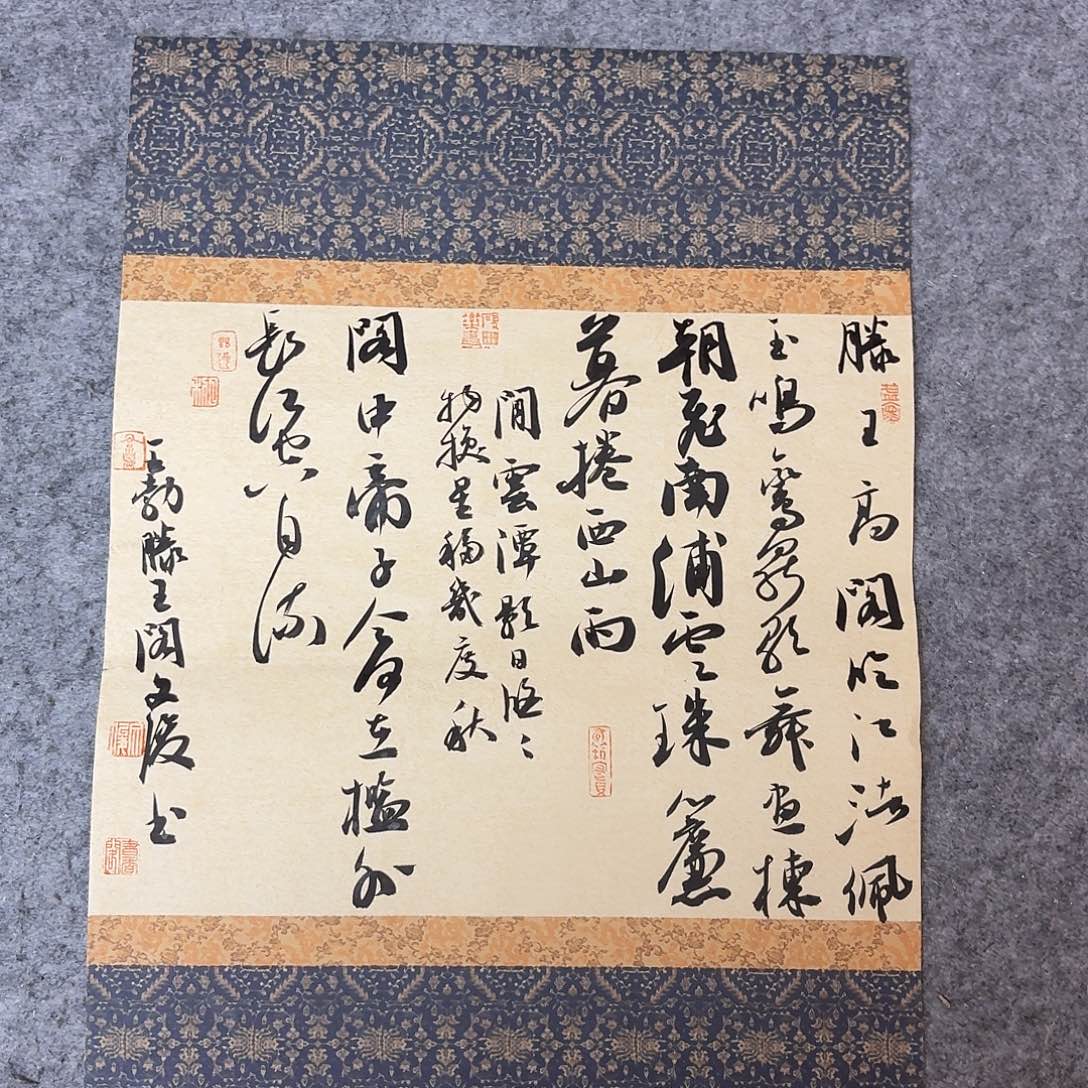 滕王高閣臨江渚佩
玉鳴鸞罷歌舞畫棟
朝飛南浦雲珠簾
暮捲西山雨
閒雲潭影日悠々
物換星移幾度秋
閣中帝子今何在檻外
長江空自流
王勃滕王閣文俊书